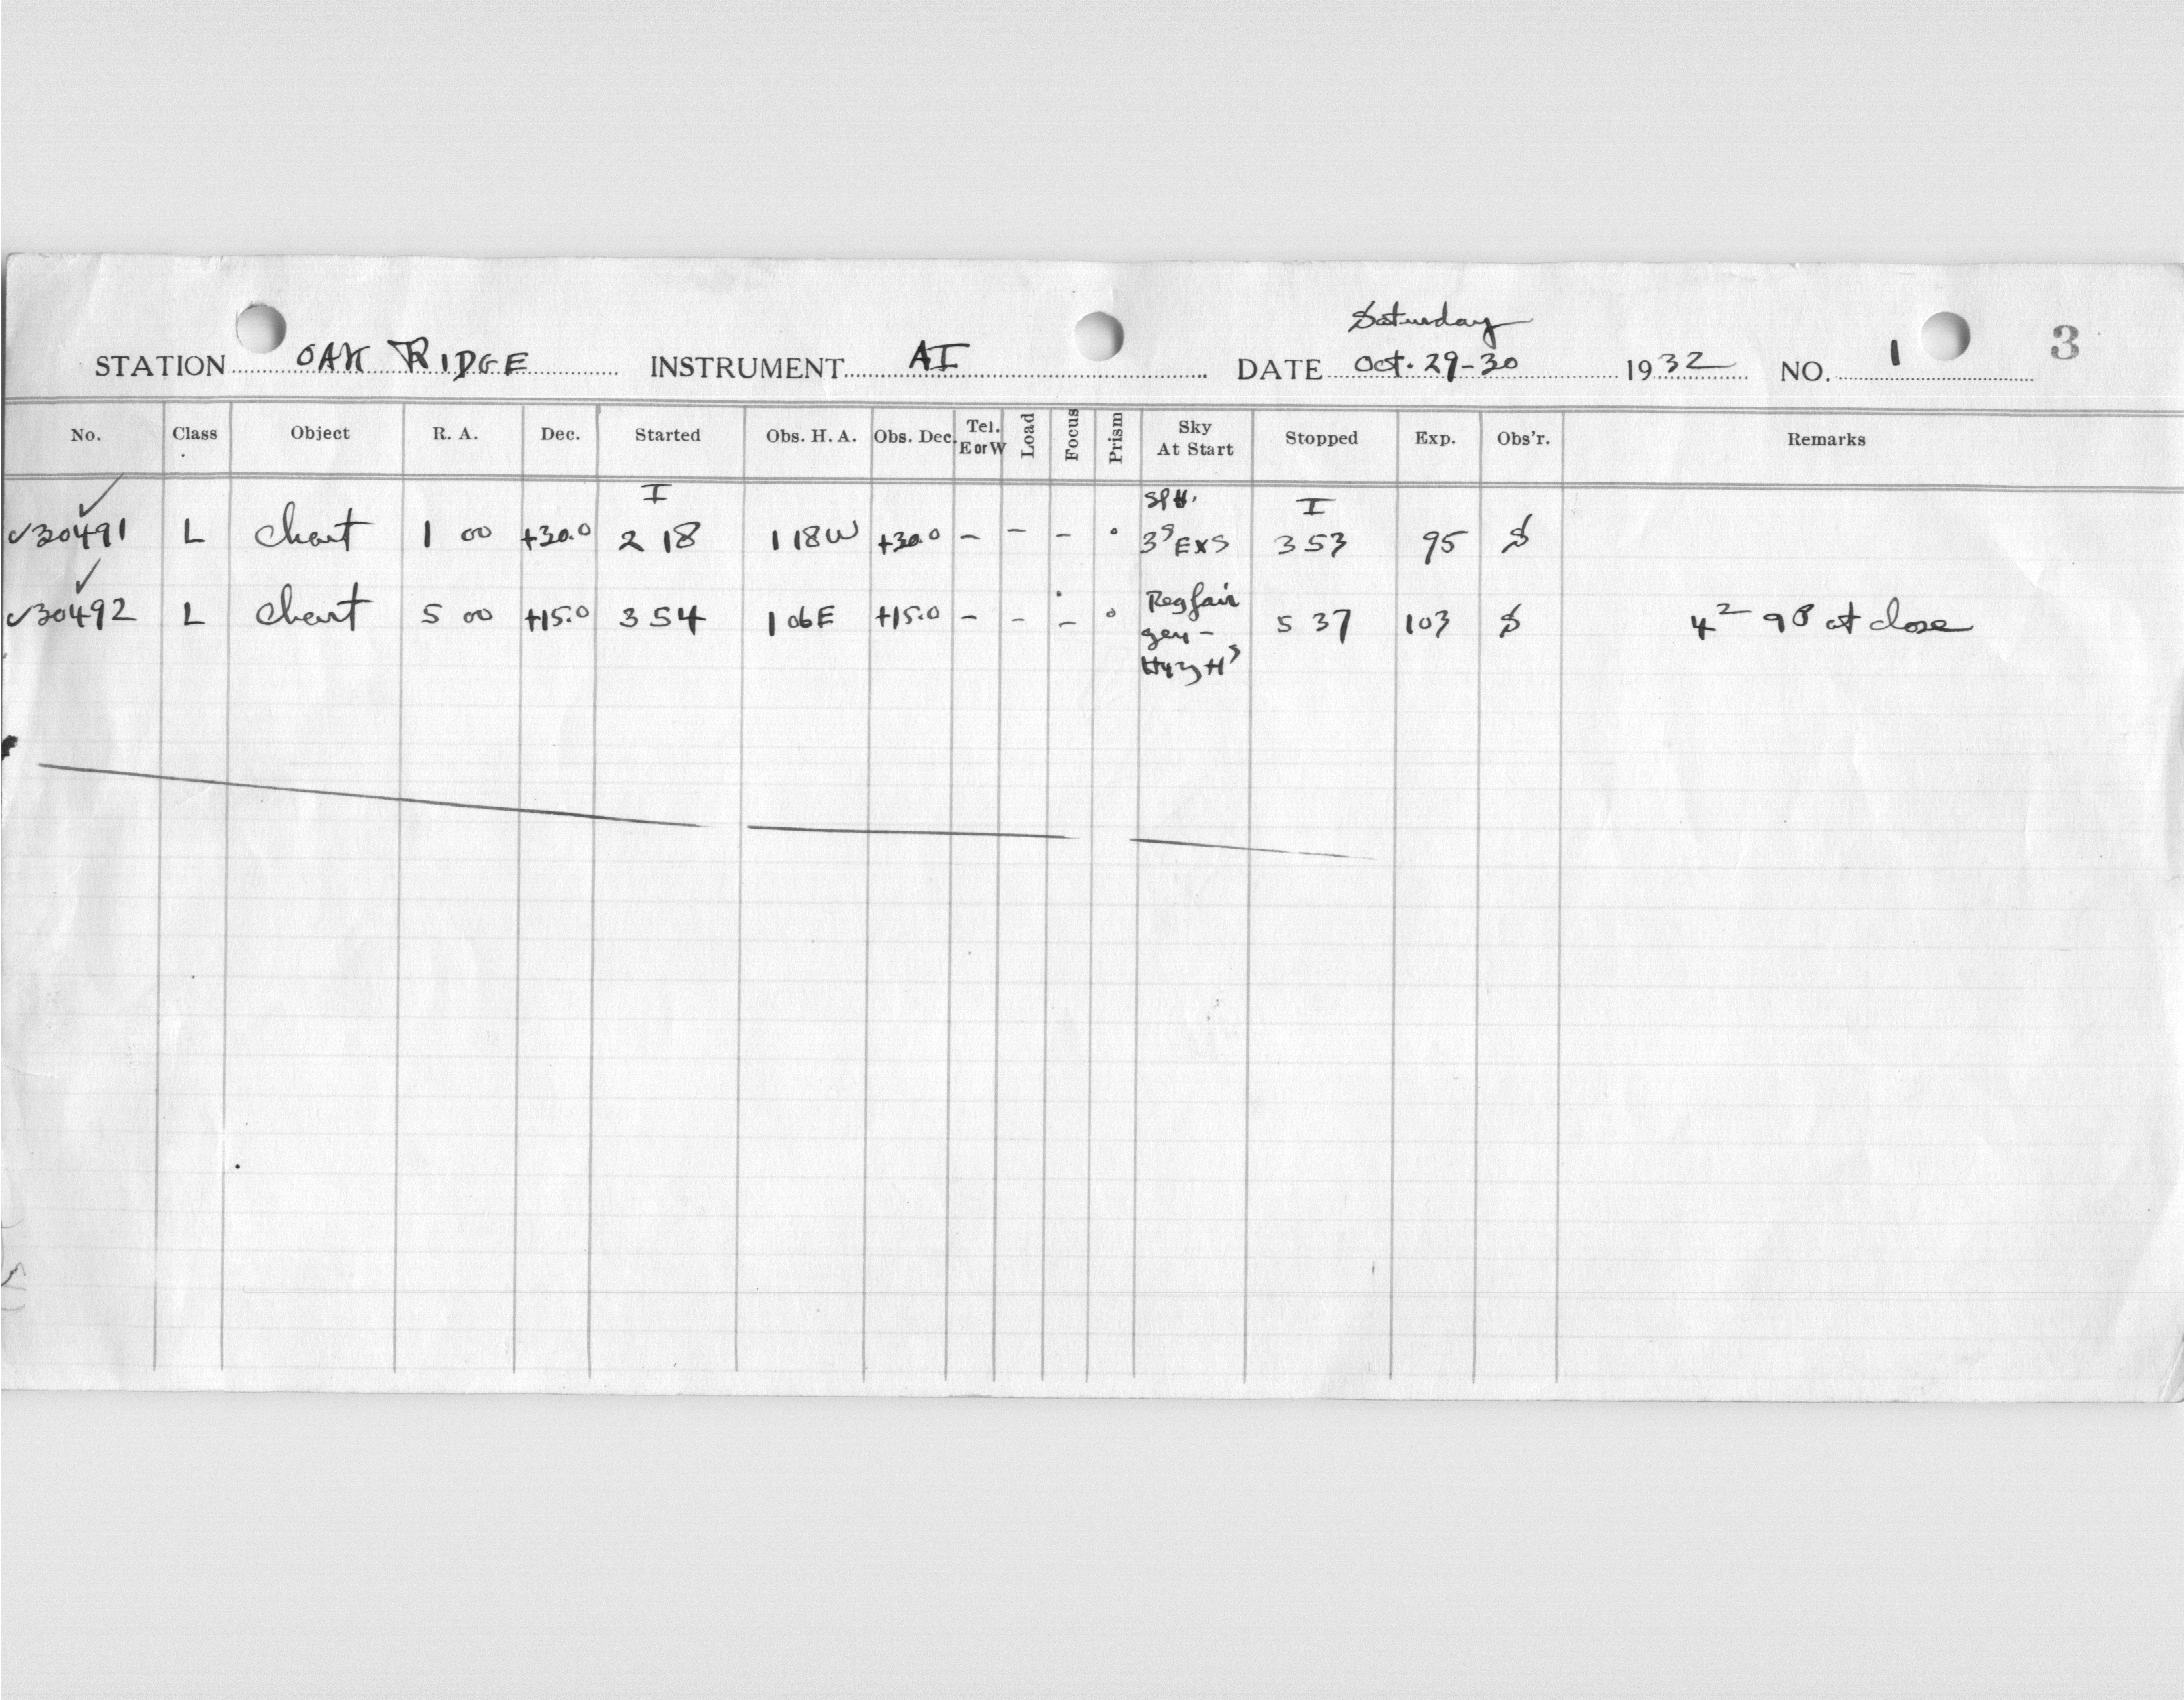 Saturday
STATION OAK RIDGE INSTRUMENT AI DATE Oct. 29-30 1932 NO. 1 3
No. Class Object R. A. Dec. Started Obs. H. A. Obs. Dec. Tel. E or W Load Focus Prism Sky At Start Stopped Exp. Obs'r. Remarks
I I
✓30491 L Chart 1 00 +30.0 2 18 1 18W +30.0 - - - 3 53 95 S
✓30492 L Chart 5 00 +15.0 3 54 1 06E +15.0 - - - Reg fair 5 37 103 S at close